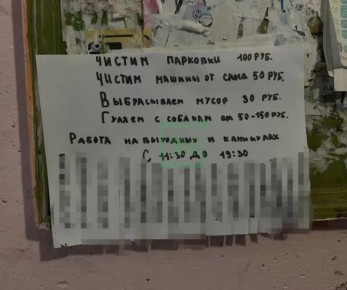 Чистим парковки 100 руб.
Чистим машины от снега 50 руб.
Выбрасываем мусор 30 руб.
Гуляем с собакам от 50-150 руб.
Работа на выходных и каникулах
с 11:30 до 19:30